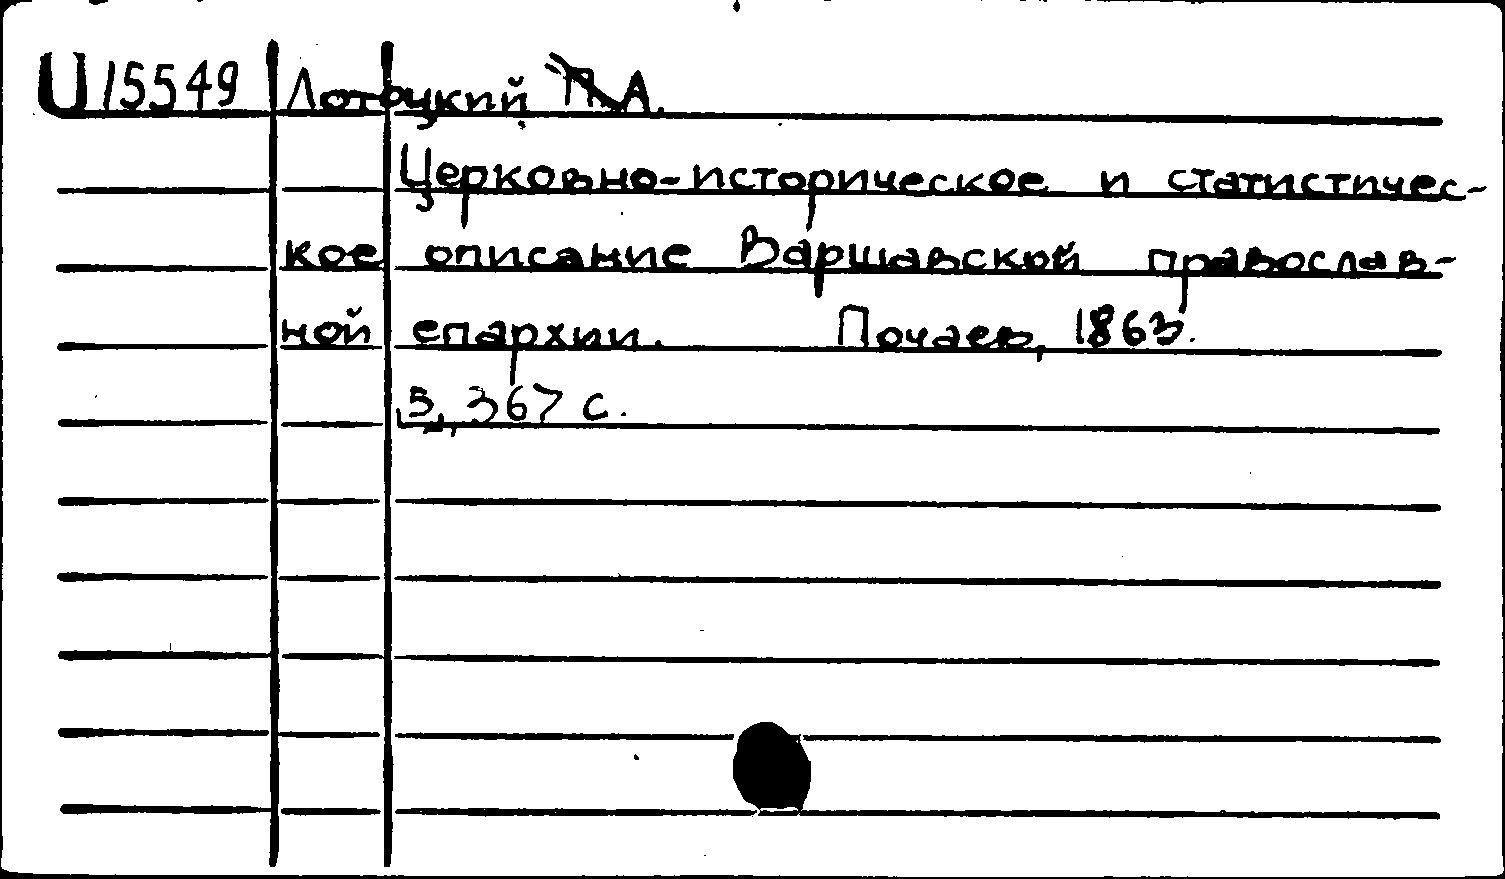 U 15549 Лотоцкий А.
Церковно-историческое и статистичес-
кое описание Варшавской православ-
ной епархии. Почаев, 1863.
5, 367 с.